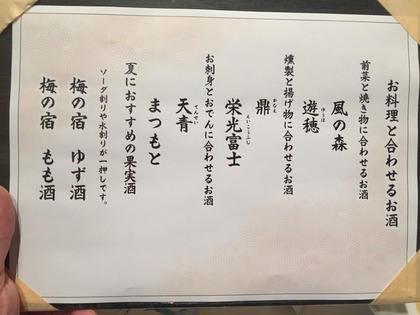 お料理と合わせるお酒
前菜と焼き物に合わせるお酒
風の森
遊穂
ゆうほ
燻製と揚げ物に合わせるお酒
鼎
かなえ
栄光富士
えいこうふじ
お刺身とおでんに合わせるお酒
天青
てんせい
まつもと
夏におすすめの果実酒
ソーダ割りや水割りが一押しです。
梅の宿 ゆず酒
梅の宿 もも酒